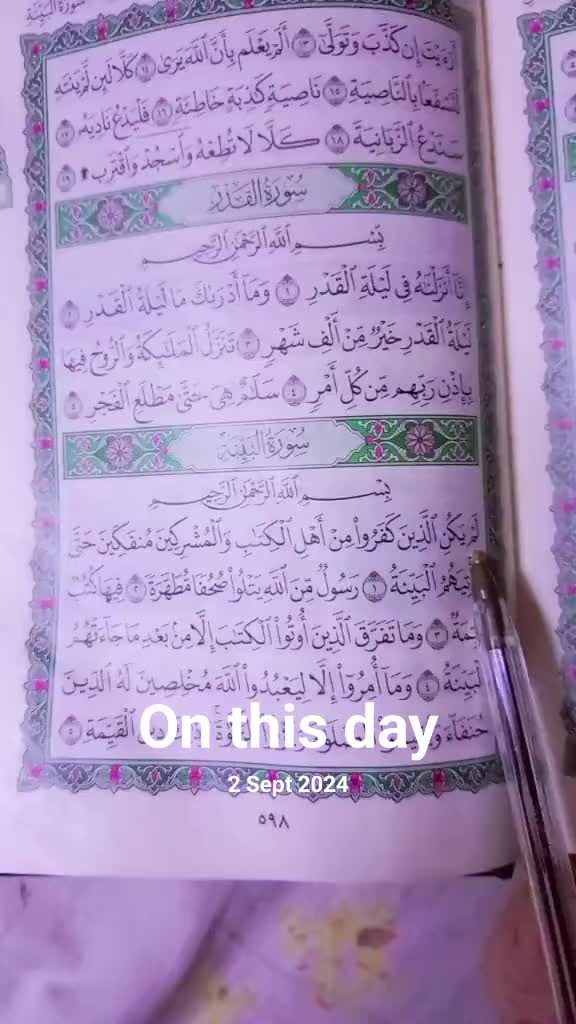 سورة البينة
أَرَءَيْتَ إِن كَذَّبَ وَتَوَلَّىٰٓ ١٣ أَلَمْ يَعْلَم بِأَنَّ ٱللَّهَ يَرَىٰ ١٤ كَلَّا لَئِن لَّمْ يَنتَهِ
لَنَسْفَعًۢا بِٱلنَّاصِيَةِ ١٥ نَاصِيَةٍ كَٰذِبَةٍ خَاطِئَةٍ ١٦ فَلْيَدْعُ نَادِيَهُۥ ١٧
سَنَدْعُ ٱلزَّبَانِيَةَ ١٨ كَلَّا لَا تُطِعْهُ وَٱسْجُدْ وَٱقْتَرِب ۩ ١٩
سُورَةُ القَدْرِ
بِسْمِ ٱللَّهِ ٱلرَّحْمَٰنِ ٱلرَّحِيمِ
إِنَّآ أَنزَلْنَٰهُ فِى لَيْلَةِ ٱلْقَدْرِ ١ وَمَآ أَدْرَىٰكَ مَا لَيْلَةُ ٱلْقَدْرِ ٢
لَيْلَةُ ٱلْقَدْرِ خَيْرٌ مِّنْ أَلْفِ شَهْرٍ ٣ تَنَزَّلُ ٱلْمَلَٰٓئِكَةُ وَٱلرُّوحُ فِيهَا
بِإِذْنِ رَبِّهِم مِّن كُلِّ أَمْرٍ ٤ سَلَٰمٌ هِىَ حَتَّىٰ مَطْلَعِ ٱلْفَجْرِ ٥
سُورَةُ البَيِّنَةِ
بِسْمِ ٱللَّهِ ٱلرَّحْمَٰنِ ٱلرَّحِيمِ
لَمْ يَكُنِ ٱلَّذِينَ كَفَرُوا۟ مِنْ أَهْلِ ٱلْكِتَٰبِ وَٱلْمُشْرِكِينَ مُنفَكِّينَ حَتَّىٰ
تَأْتِيَهُمُ ٱلْبَيِّنَةُ ١ رَسُولٌ مِّنَ ٱللَّهِ يَتْلُوا۟ صُحُفًا مُّطَهَّرَةً ٢ فِيهَا كُتُبٌ
قَيِّمَةٌ ٣ وَمَا تَفَرَّقَ ٱلَّذِينَ أُوتُوا۟ ٱلْكِتَٰبَ إِلَّا مِنۢ بَعْدِ مَا جَآءَتْهُمُ
ٱلْبَيِّنَةُ ٤ وَمَآ أُمِرُوٓا۟ إِلَّا لِيَعْبُدُوا۟ ٱللَّهَ مُخْلِصِينَ لَهُ ٱلدِّينَ
حُنَفَآءَ ٱلْقَيِّمَةِ ٥
On this day
2 Sept 2024
٥٩٨